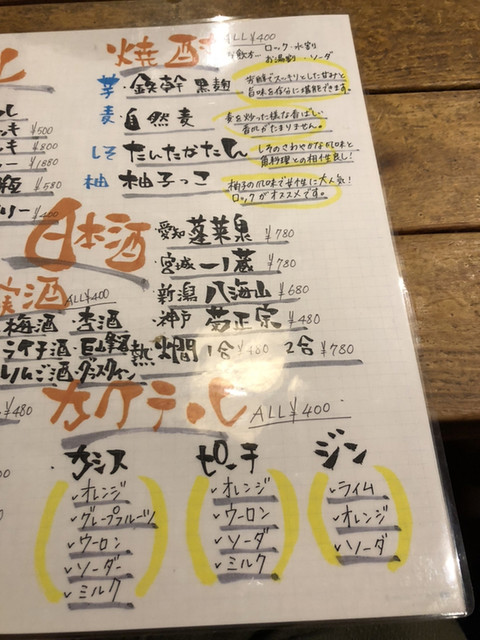 焼酎 ALL¥400
お飲み方… ロック・水割
お湯割・ソーダ
芋・鉄幹 黒麹
お味でスッキリとした甘みと
旨味を存分に堪能できます。
麦・自然麦
麦を炒った様な香ばしい
香りがたまりません。
しそ たんたかたん
しそのさわやかな風味と
肉料理との相性良し!
柚 柚子っこ
柚子の風味で女性に大人気!
ロックがオススメです。
¥500
¥800
¥1880
¥580
¥400
日本酒
・愛知 蓬莱泉 ¥780
・宮城 一ノ蔵 ¥780
・新潟 八海山 ¥680
・神戸 菊正宗 ¥480
熱燗 1合 ¥480 2合 ¥780
実酒 ALL¥400
梅酒・杏酒
ライチ酒
りんご酒
¥480
カクテル ALL¥400
カシス
オレンジ
グレープフルーツ
ウーロン
ソーダー
ミルク
ピーチ
オレンジ
ウーロン
ソーダ
ミルク
ジン
ライム
オレンジ
ソーダ